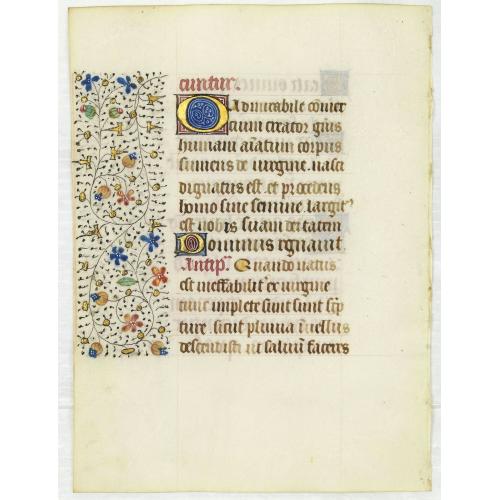 cuntur.
O Admirabile com̄er
cium creator gn̄is
humani aīatum corpus
sumens de virgine nasci
dignatus est. et procedens
homo sine semine largit'
est nobis suam deitatem
Dominus regnavit
Antip̄. Quando natus
est ineffabilit' ex virgine
tunc implete sunt sunt sc̄p
ture. sicut pluvia ī vellus
descendisti ut salvum faceres